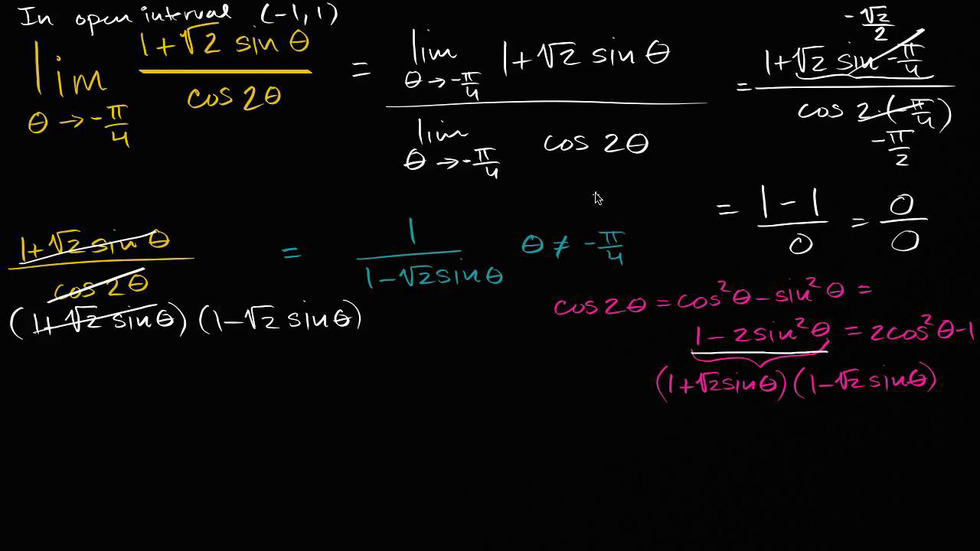 In open interval (-1, 1)
lim θ→-π/4 (1+√2 sin θ)/(cos 2θ) = (lim θ→-π/4 1+√2 sin θ)/(lim θ→-π/4 cos 2θ) = (1+√2 sin -π/4)/(cos 2·(-π/4))
-√2/2
-π/2
= (1-1)/0 = 0/0
(1+√2 sin θ)/(cos 2θ) = 1/(1-√2 sin θ) θ ≠ -π/4
(1+√2 sin θ)(1-√2 sin θ)
cos 2θ = cos²θ - sin²θ =
1 - 2sin²θ = 2cos²θ-1
(1+√2 sin θ)(1-√2 sin θ)